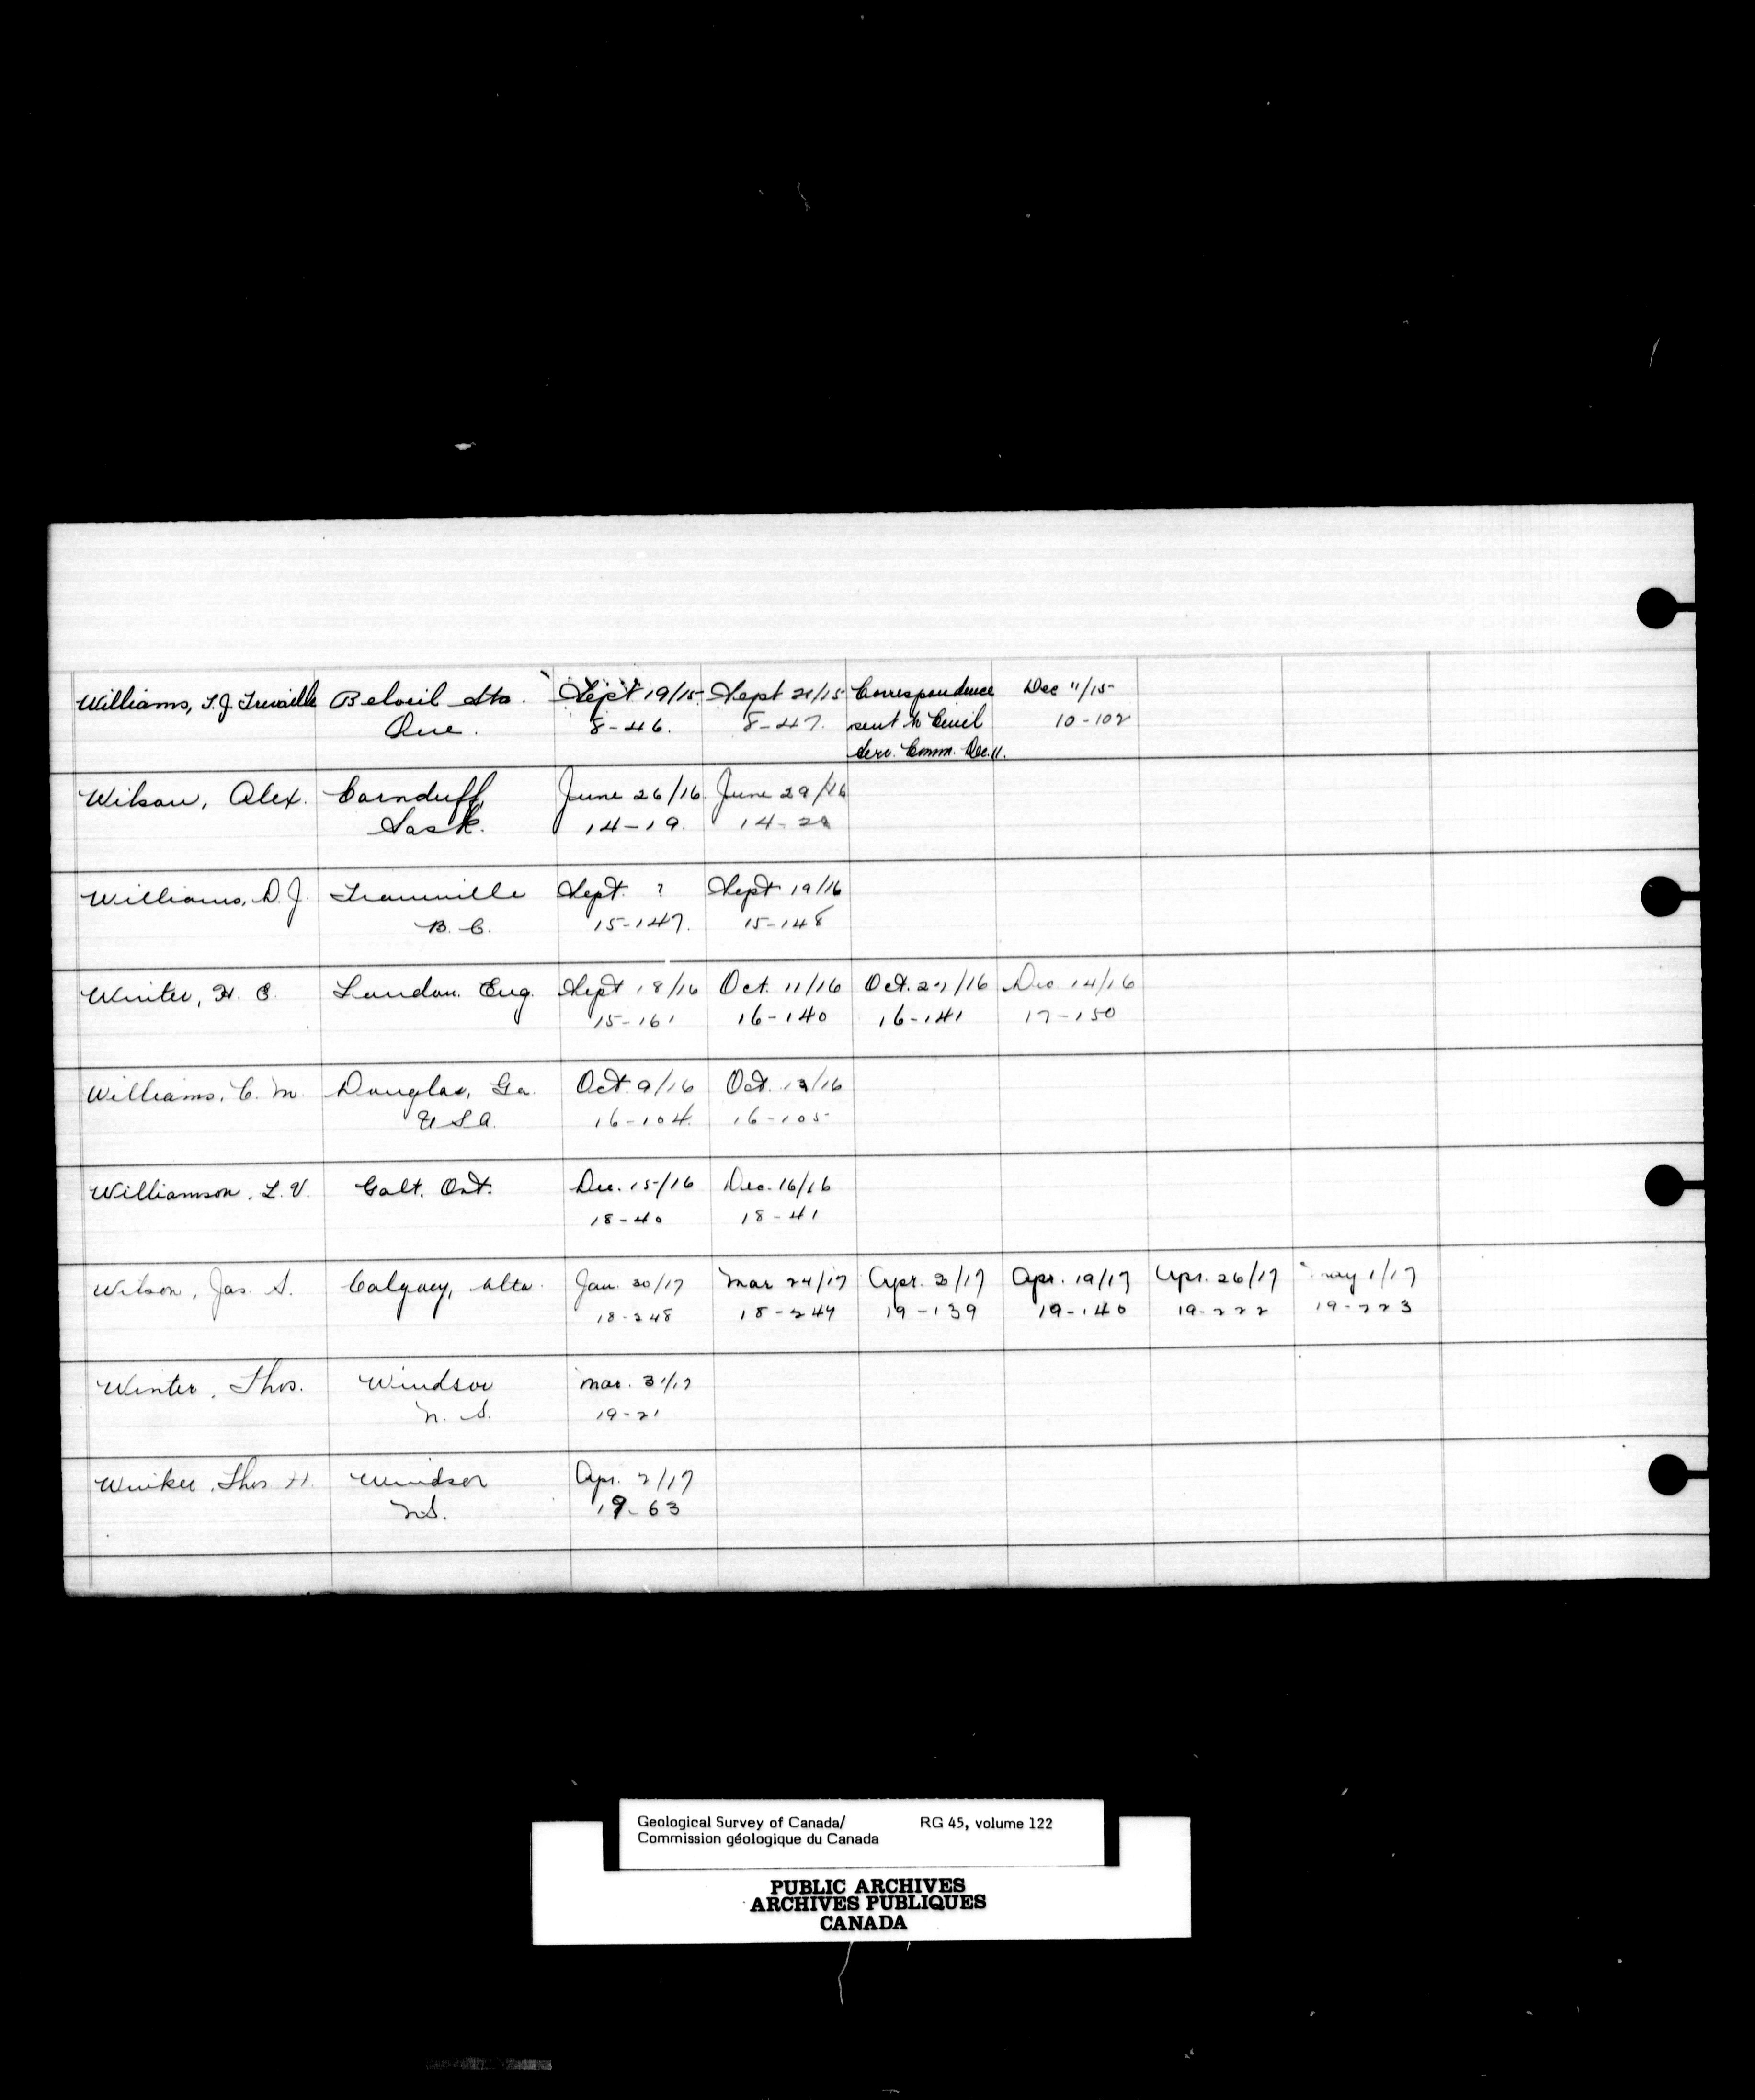 Williams, T.J. Trevaille Beloeil Sta. Sept 19/15 Sept 21/15 Correspondence Dec 11/15
Que. 8-46. 8-47. sent to Civil 10-102
Serv. Comm. Dec. 11.
Wilson, Alex. Carnduff, June 26/16 June 29/16
Sask. 14-19. 14-20
Williams, D.J. Tranville Sept. ? Sept 19/16
B.C. 15-147. 15-148
Winter, H. E. London. Eng. Sept 18/16 Oct. 11/16 Oct. 27/16 Dec 14/16
15-161 16-140 16-141 17-150
Williams, C. M. Douglas, Ga. Oct. 9/16 Oct. 13/16
U.S.A. 16-104. 16-105
Williamson, L. V. Galt, Ont. Dec. 15/16 Dec. 16/16
18-40 18-41
Wilson, Jas. S. Calgary, Alta. Jan. 30/17 Mar 24/17 Apr. 3/17 Apr. 19/17 Apr. 26/17 May 1/17
18-248 18-249 19-139 19-140 19-222 19-223
Winter, Thos. Windsor Mar. 31/17
N. S. 19-21
Thos H. Windsor Apr. 2/17
N.S. 19-63
Geological Survey of Canada/ RG 45, volume 122
Commission géologique du Canada
PUBLIC ARCHIVES
ARCHIVES PUBLIQUES
CANADA